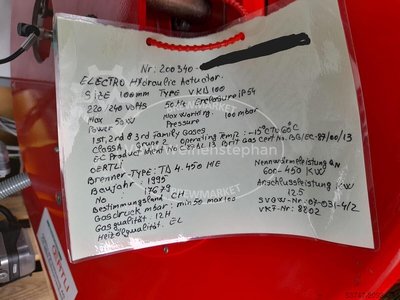 Nr: 200340-
ELECTRO Hydraulic Actuator.
SIZE 100mm TYPE VKD100
220/240 Volts 50 Hz Enclosure iP54
Max 50W Max Working 100 mbar
Power Pressure
1st, 2nd & 3rd Family Gases
Class A Group 2 Operating Temp: -15°C TO 60°C
EC Product Ident No Brit Gas Cert No.
OERTLI
Brenner-TYPE: TD 4.450 ME
Baujahr: 1995
No 17679
Bestimmungsland: CH
Gasdruck mbar: min 50 max 100
Gasqualität: 12H
Heizölqualität: EL
Nennwärmeleistung
600-450 KW
Anschlussleistung KW
12.5
SVGW-Nr: 07-031-4/2
VKF-Nr: 8202
NEWMARKET